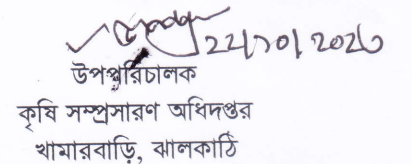 22/10/2020
উপপরিচালক
কৃষি সম্প্রসারণ অধিদপ্তর
খামারবাড়ি, ঝালকাঠি